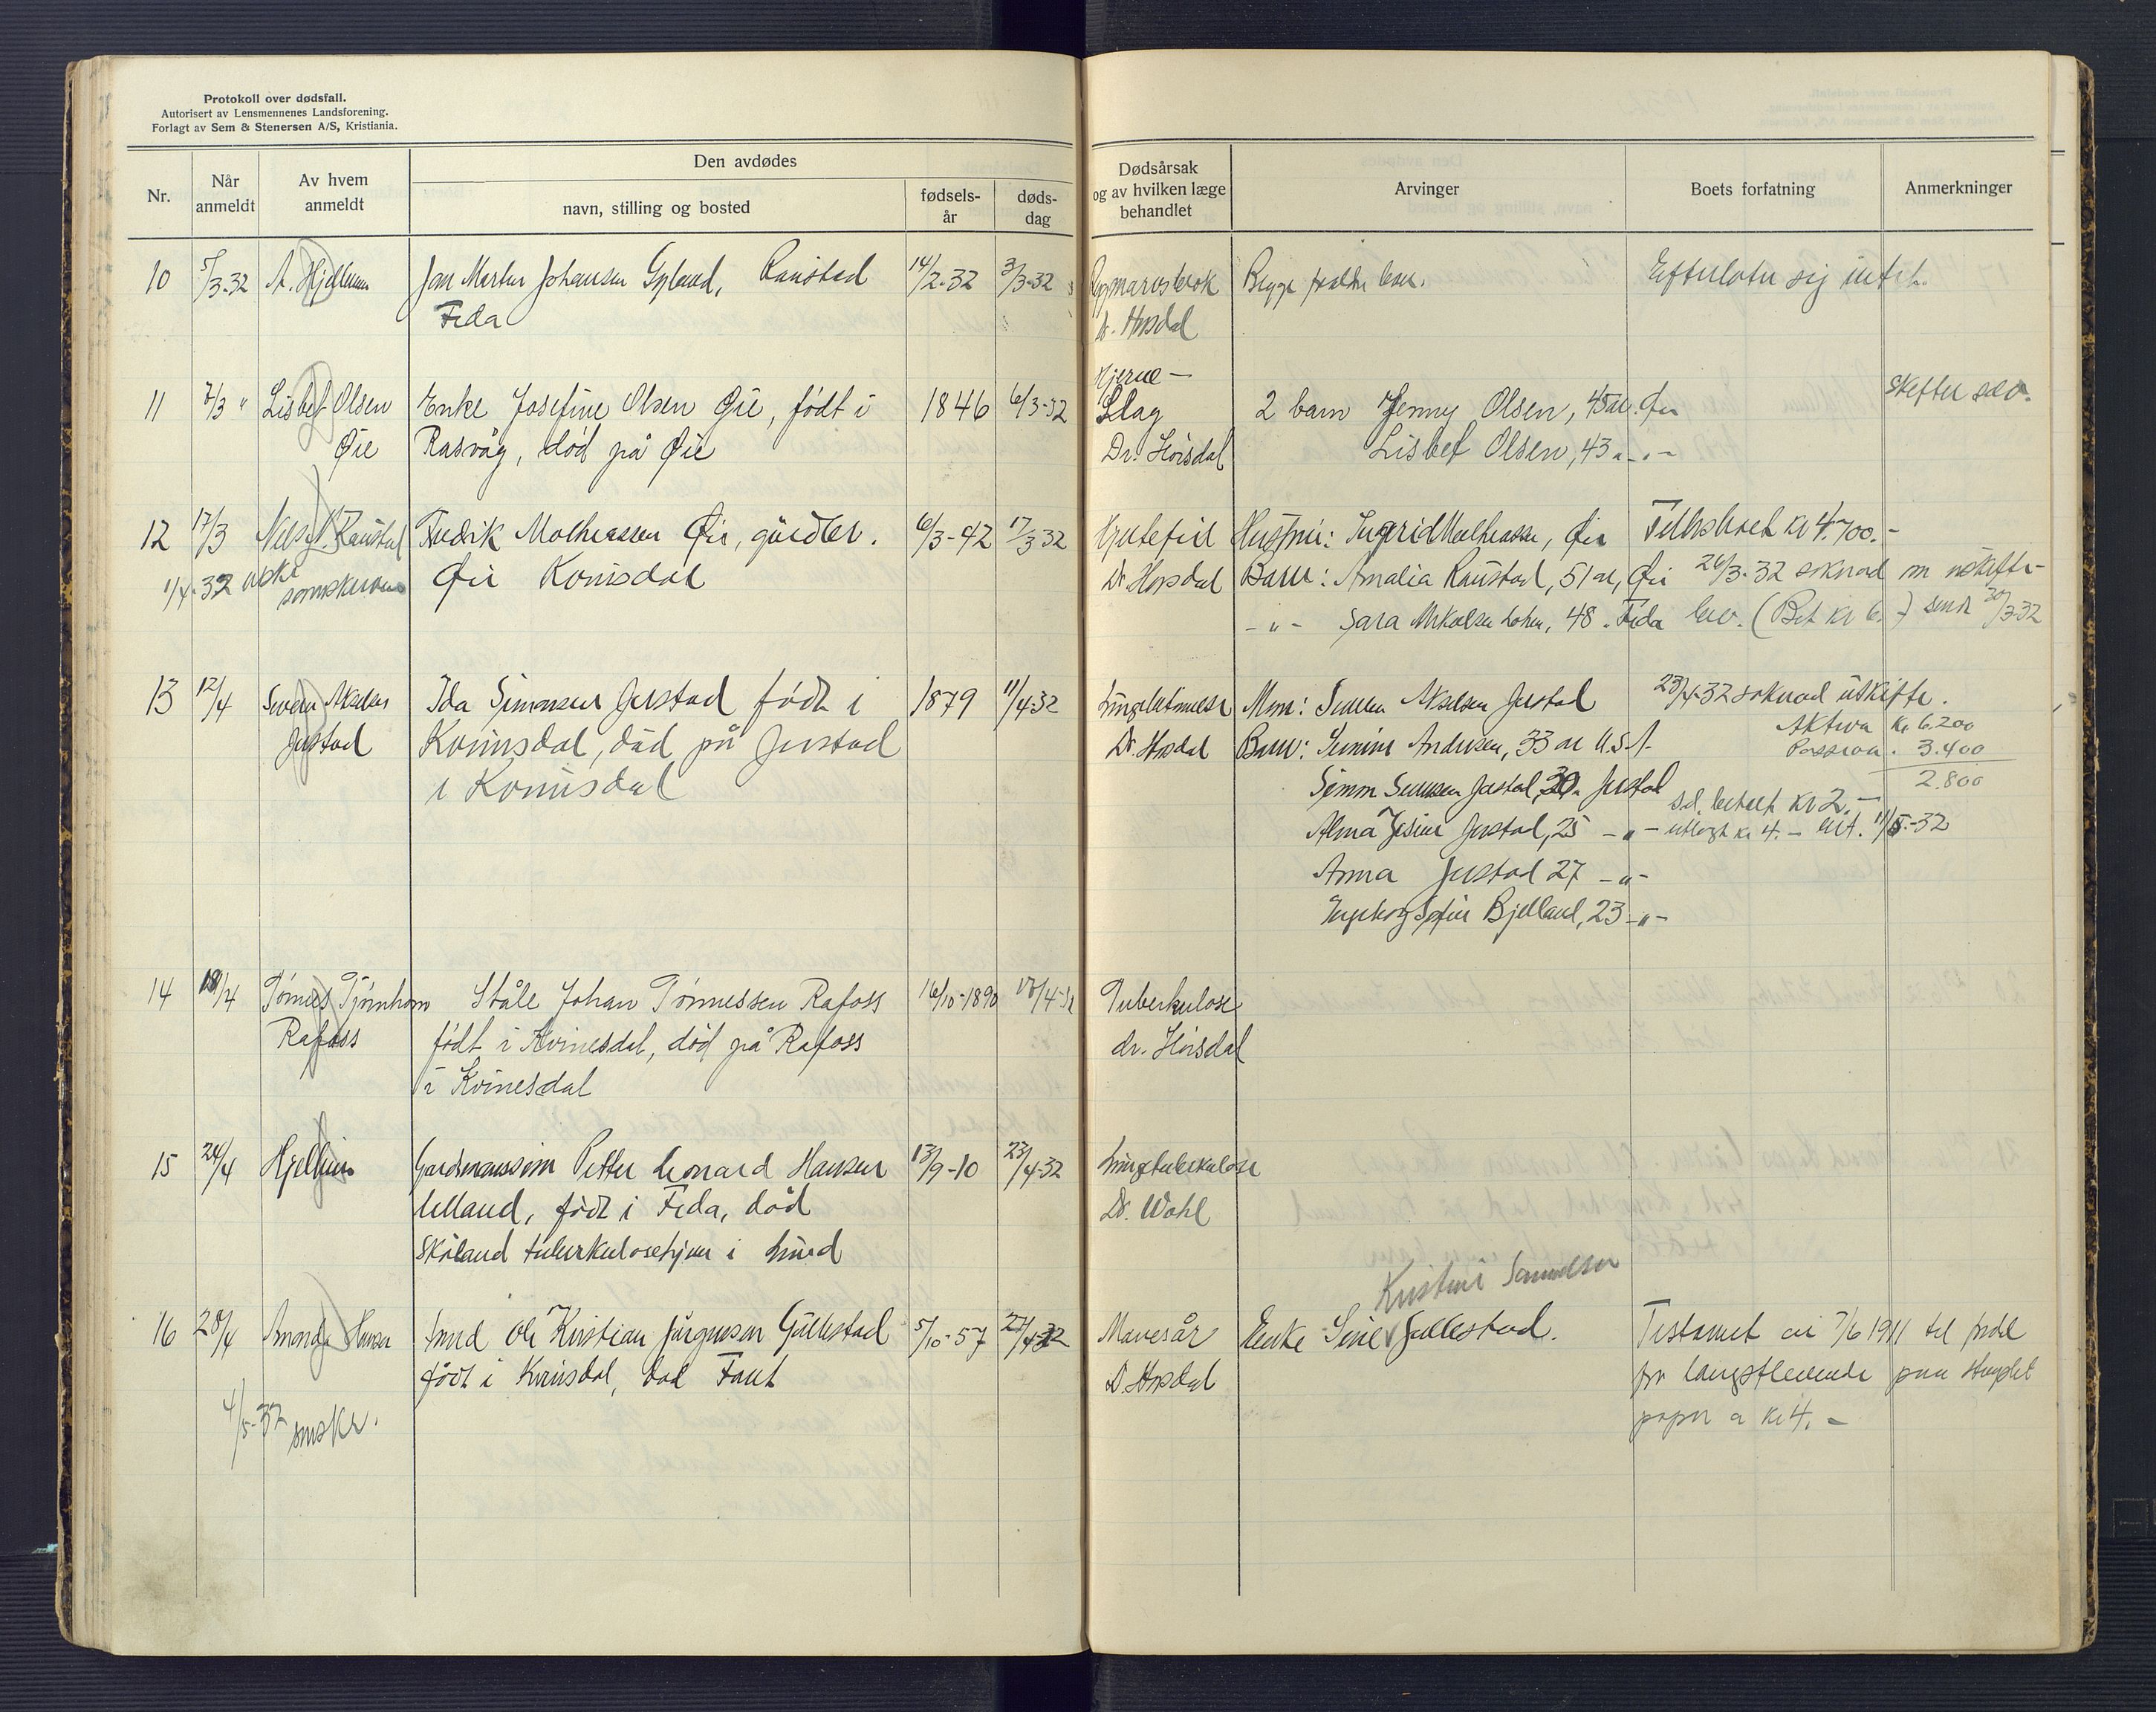 Protokoll over dødsfall.
Autorisert av Lensmennenes Landsforening.
Forlagt av Sem & Stenersen A/S, Kristiania.
Nr.
Når anmeldt
Av hvem anmeldt
Den avdødes
navn, stilling og bosted
fødsels-år
døds-dag
Dødsårsak og av hvilken læge behandlet
Arvinger
Boets forfatning
Anmerkninger
10 5/3-32 A. Hjellum Jan Martin Johansen Gyland, Raustad 14/2-32 3/3-32 Rygmarvsbrok Begge foreldre lever. Efterlater sig intet.
Feda Dr. Høisdal
11 7/3 " Lisbet Olsen Enke Josefine Olsen Øie, født i 1846 6/3-32 Hjerne-
Slag 2 barn Jenny Olsen, 45 år. Øie Skifter selv.
Øie Rasvåg, død på Øie Dr. Høisdal Lisbet Olsen, 43 " - " -
12 17/3 Nels Raustad Fredrik Mathiassen Øie, gårdbr. 6/3-42 17/3-32 Hjertefeil Hustru: Ingrid Mathiassen, Øie Fellesboet kr 4.700.-
1/4-32 Øie Kvinesdal Dr Høisdal Barn: Amalia Raustad, 51 år, Øie 26/3-32 søknad om uskifte-
- " - Sara 48 " Feda bev. (Bet kr 6.-) sendt 30/3-32
13 12/4 Severin Akselsen Ida Simonsen Jerstad født i 1879 11/4-32 Lungebetennelse Mann: Severin Akselsen Jerstad 23/4-32 søknad uskifte.
Jerstad Kvinesdal, død på Jerstad Dr. Høisdal Barn: Andersen, 33 år U.S.A. Aktiva kr 6.200
i Kvinesdal Passiva " 3.400
Simon Jerstad, 30 " Jerstad 2.800
betalt kr 2.-
Alma Jerstad, 25 - " - utlagt kr 4.- 11/5-32
Anna Jerstad 27 - " -
Ingeborg Sofie Bjelland, 23 - " -
14 18/4 Tønnes Tjørnhom Ståle Johan Tønnessen Rafoss 16/10-1890 17/4-32 Tuberkulose
Rafoss født i Kvinesdal, død på Rafoss dr. Høisdal
i Kvinesdal
15 24/4 Hjellum Gardmannssønn Petter Leonard Hansen 13/9-10 23/4-32 Lungetuberkulose
Ulland, født i Feda, død Dr. Wahl
Skåland tuberkulosehjem i Lund
Kristine Samuelsen
16 28/4 Amanda Hansen Ole Kristian Jørgensen Gullestad 5/10-57 27/4-32 Mavesår Enke Sine Gullestad. Testament av 7/6 1911 til fordel
født i Kvinesdal, død Dr. Høisdal for lengstlevende paa stemplet
4/5-32 ønsker. papir a kr 4.-